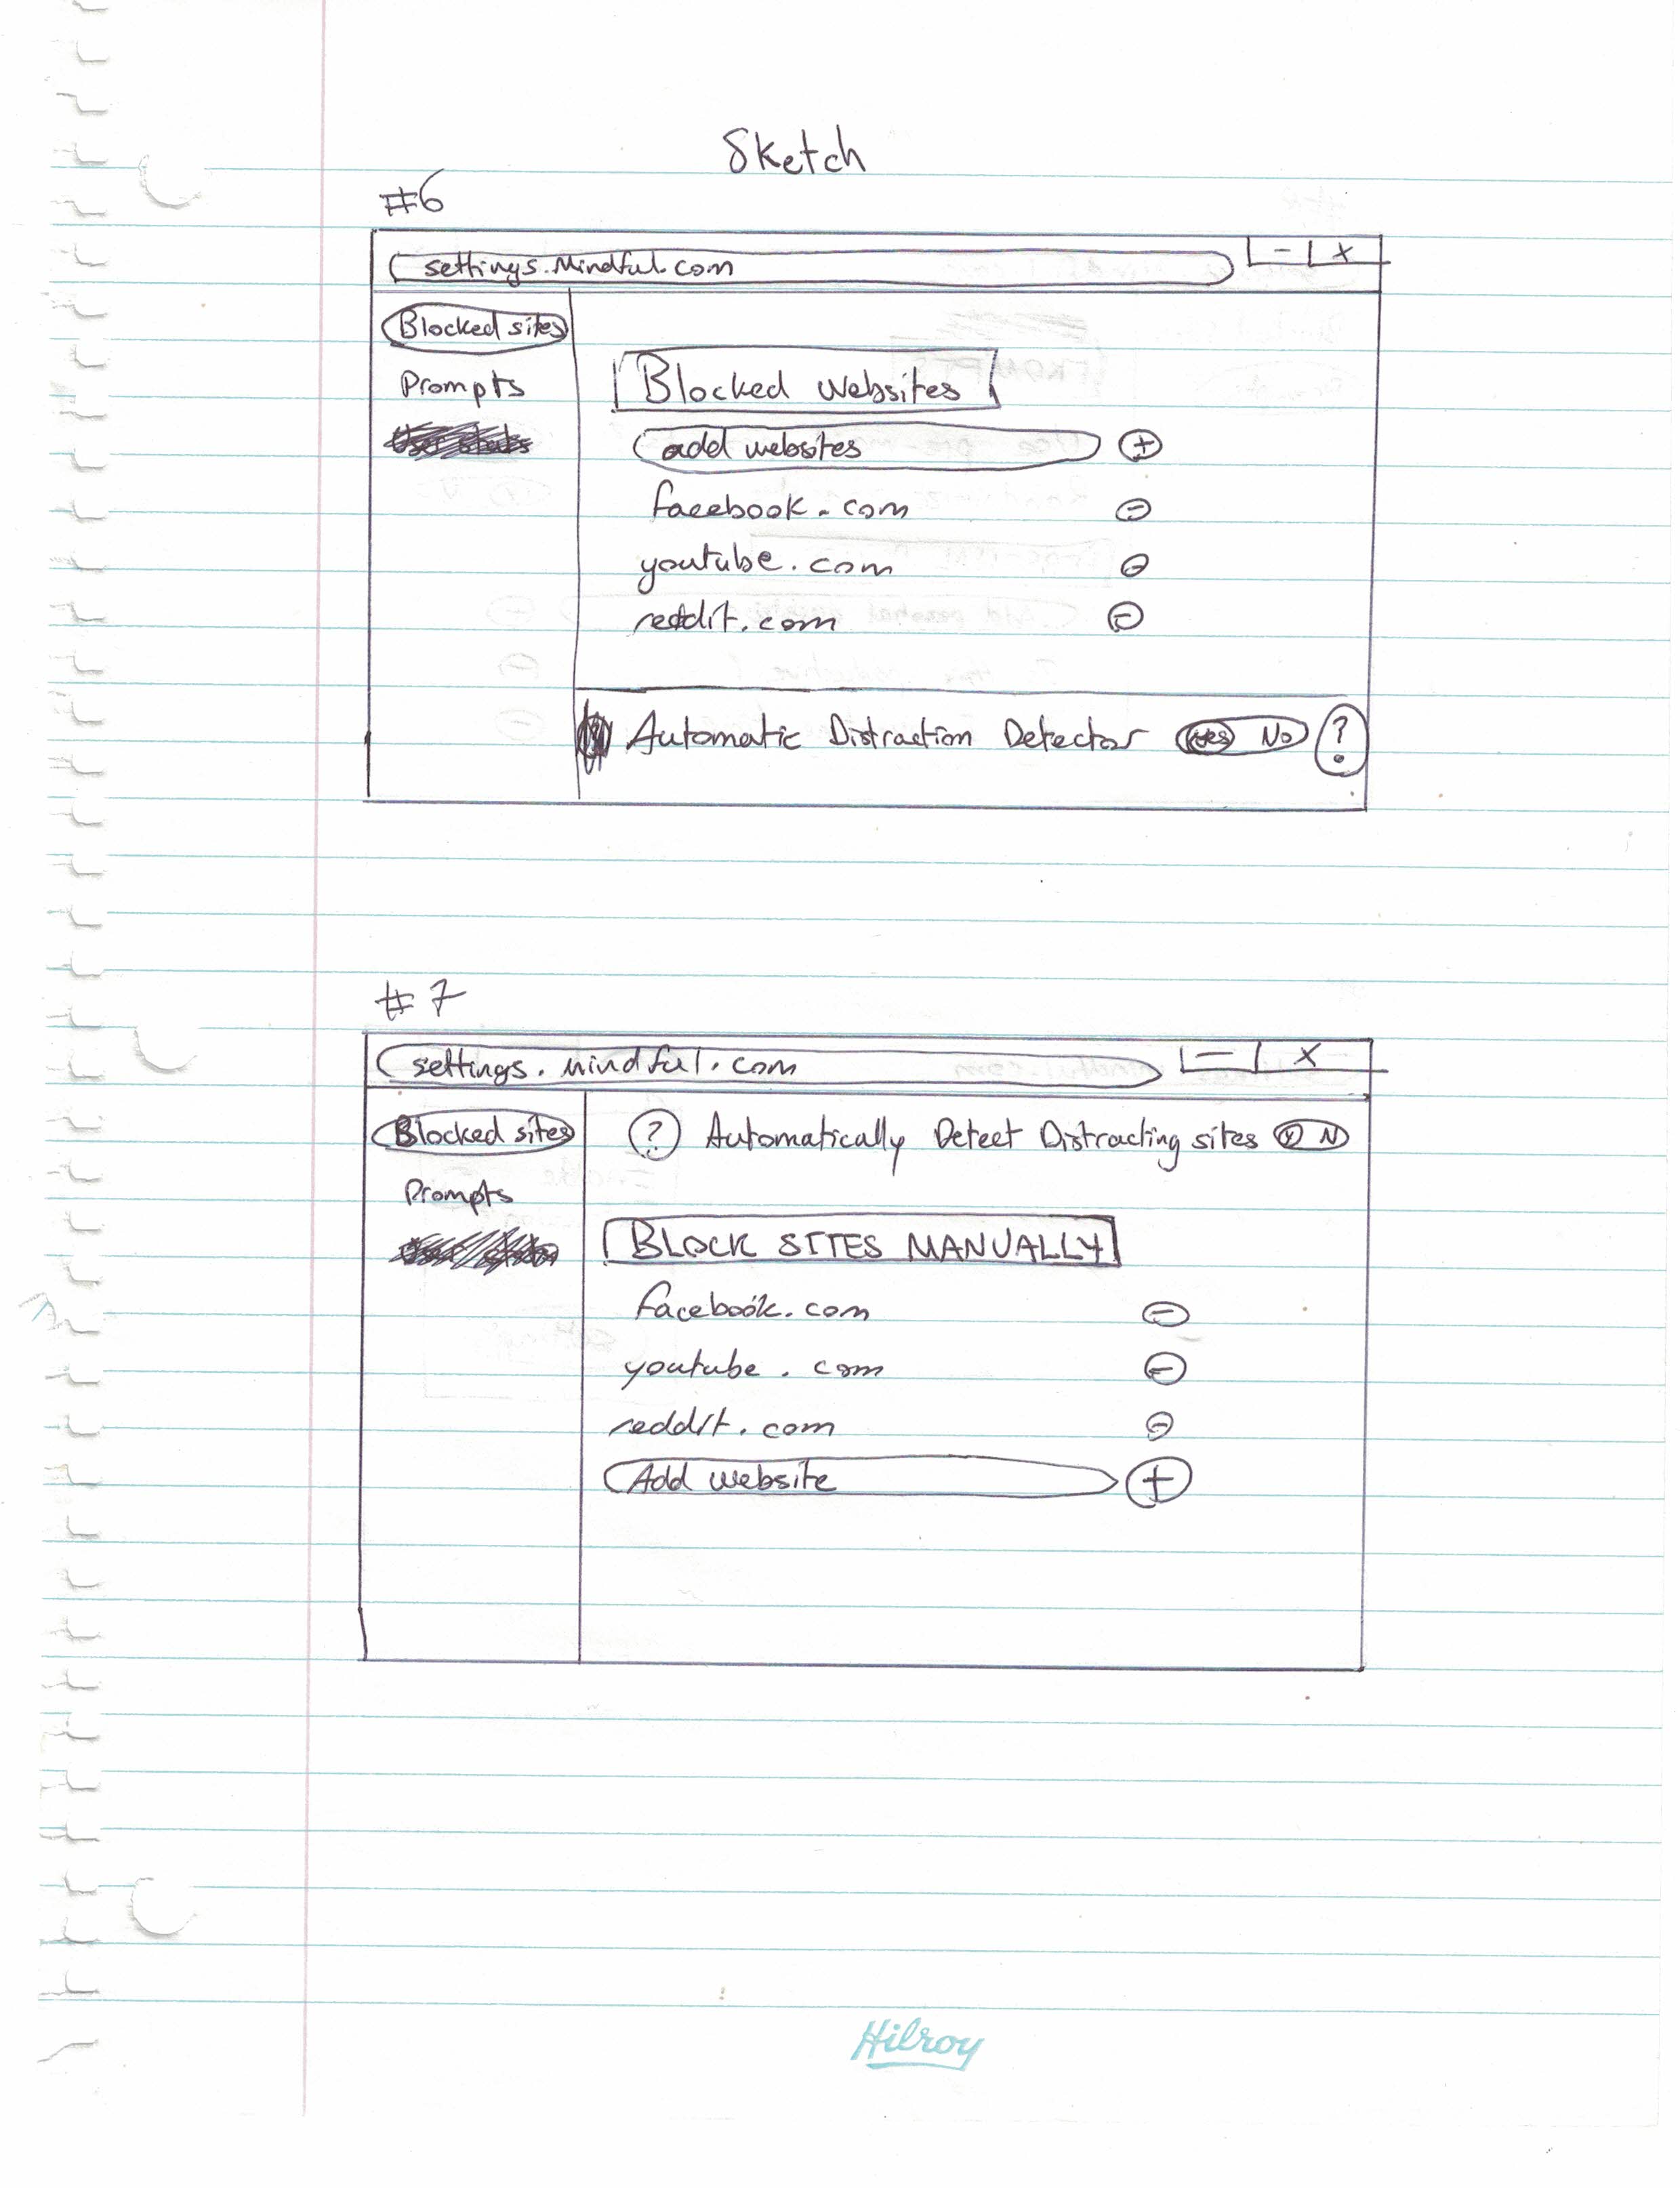 Sketch
#6
settings.Mindful.com
- X
Blocked sites
Blocked Websites
Prompts
add websites +
facebook.com -
youtube.com -
reddit.com -
Automatic Distraction Detector Yes No ?
#7
settings.mindful.com
- X
Blocked sites
? Automatically Detect Distracting sites Y N
Prompts
BLOCK SITES MANUALLY
facebook.com -
youtube.com -
reddit.com -
Add website +
Hilroy